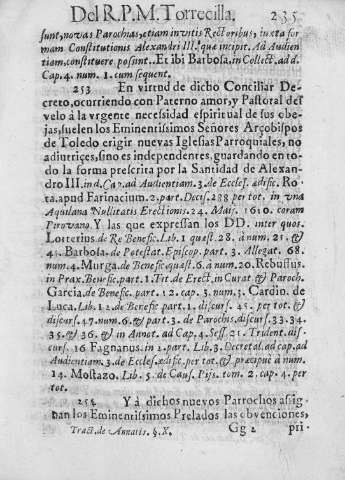 Del R.P.M. Torrecilla. 235
sunt, novas Parochias, etiam invitis Rectoribus, iuxta for
mam Constitutionis Alexandri III. que incipit. Ad Audien
tiam, constituere possint. Et ibi Barbosa, in Collect. ad d.
Cap. 4. num. 1. cum sequent.
253 En virtud de dicho Conciliar De-
creto, ocurriendo con Paterno amor, y Pastoral des
velo à la vrgente necessidad espiritual de sus obe-
jas, suelen los Eminentissimos Señores Arçobispos
de Toledo erigir nuevas Iglesias Parroquiales, no
adiutrices, sino es independentes, guardando en to-
do la forma prescrita por la Santidad de Alexan-
dro III. in d. Cap. ad Audientiam. 3. de Eccles. ædific. Ro-
ta apud Farinacium. 2. part. Decis. 288 per tot. in vna
Aquilana Nullitatis Erectionis. 24. Maij. 1610. coram
Pirovano. Y las que expressan los DD. inter quos.
Lotterius de Re Benefic. Lib. 1 quæst. 28. à num. 21. &
41. Barbosa. de Potestat. Episcop. part. 3. Allegat. 68.
num. 4. Murga. de Benefic. quæst. 6. à num. 20. Rebuffus.
in Prax. Benefic. part. 1. Tit. de Erect. in Curat. & Paroch.
Garcia. de Benefic. part. 12. cap. 3. num. 3. Cardin. de
Luca. Lib. 12. de Benefic. part. 1. discurs. 25. per tot. &
discurs. 47. num. 6. & part. 3. de Parochis. discurs. 33. 34.
35. & 36. & in Annot. ad Cap. 4. Sess. 21. Trident. dis-
curs. 16 Fagnanus. in 1. part. Lib. 3. Decretal. ad cap. ad
Audientiam. 3. de Eccles. ædific. per tot. & præcipuè à num.
14. Mostazo. Lib. 5. de Caus. Pijs. tom. 2. cap. 4. per
tot.
254 Y à dichos nuevos Parrochos assig-
nan los Eminentissimos Prelados las obvenciones,
Tract. de Annatis. §. X. Gg 2 pri-